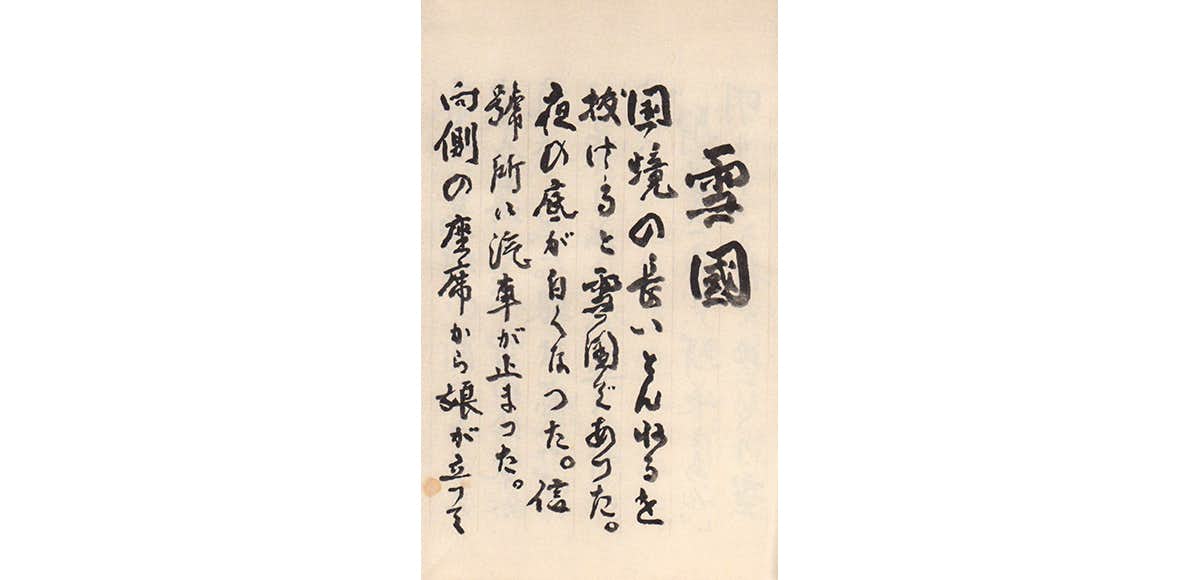 雪國
国境の長いとんねるを
抜けると雪國であつた。
夜の底が白くなつた。信
號所に汽車が止まつた。
向側の座席から娘が立つて